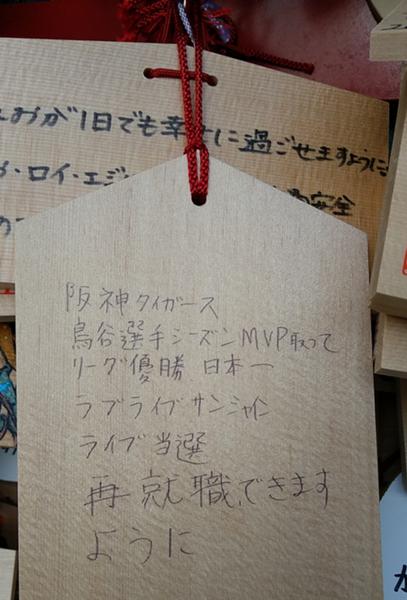 おが1日でも幸せに過ごせますように
・ロイ・エジ
安全
の
阪神タイガース
鳥谷選手シーズンMVP取って
リーグ優勝 日本一
ラブライブサンシャイン
ライブ当選
再就職できます
ように
か